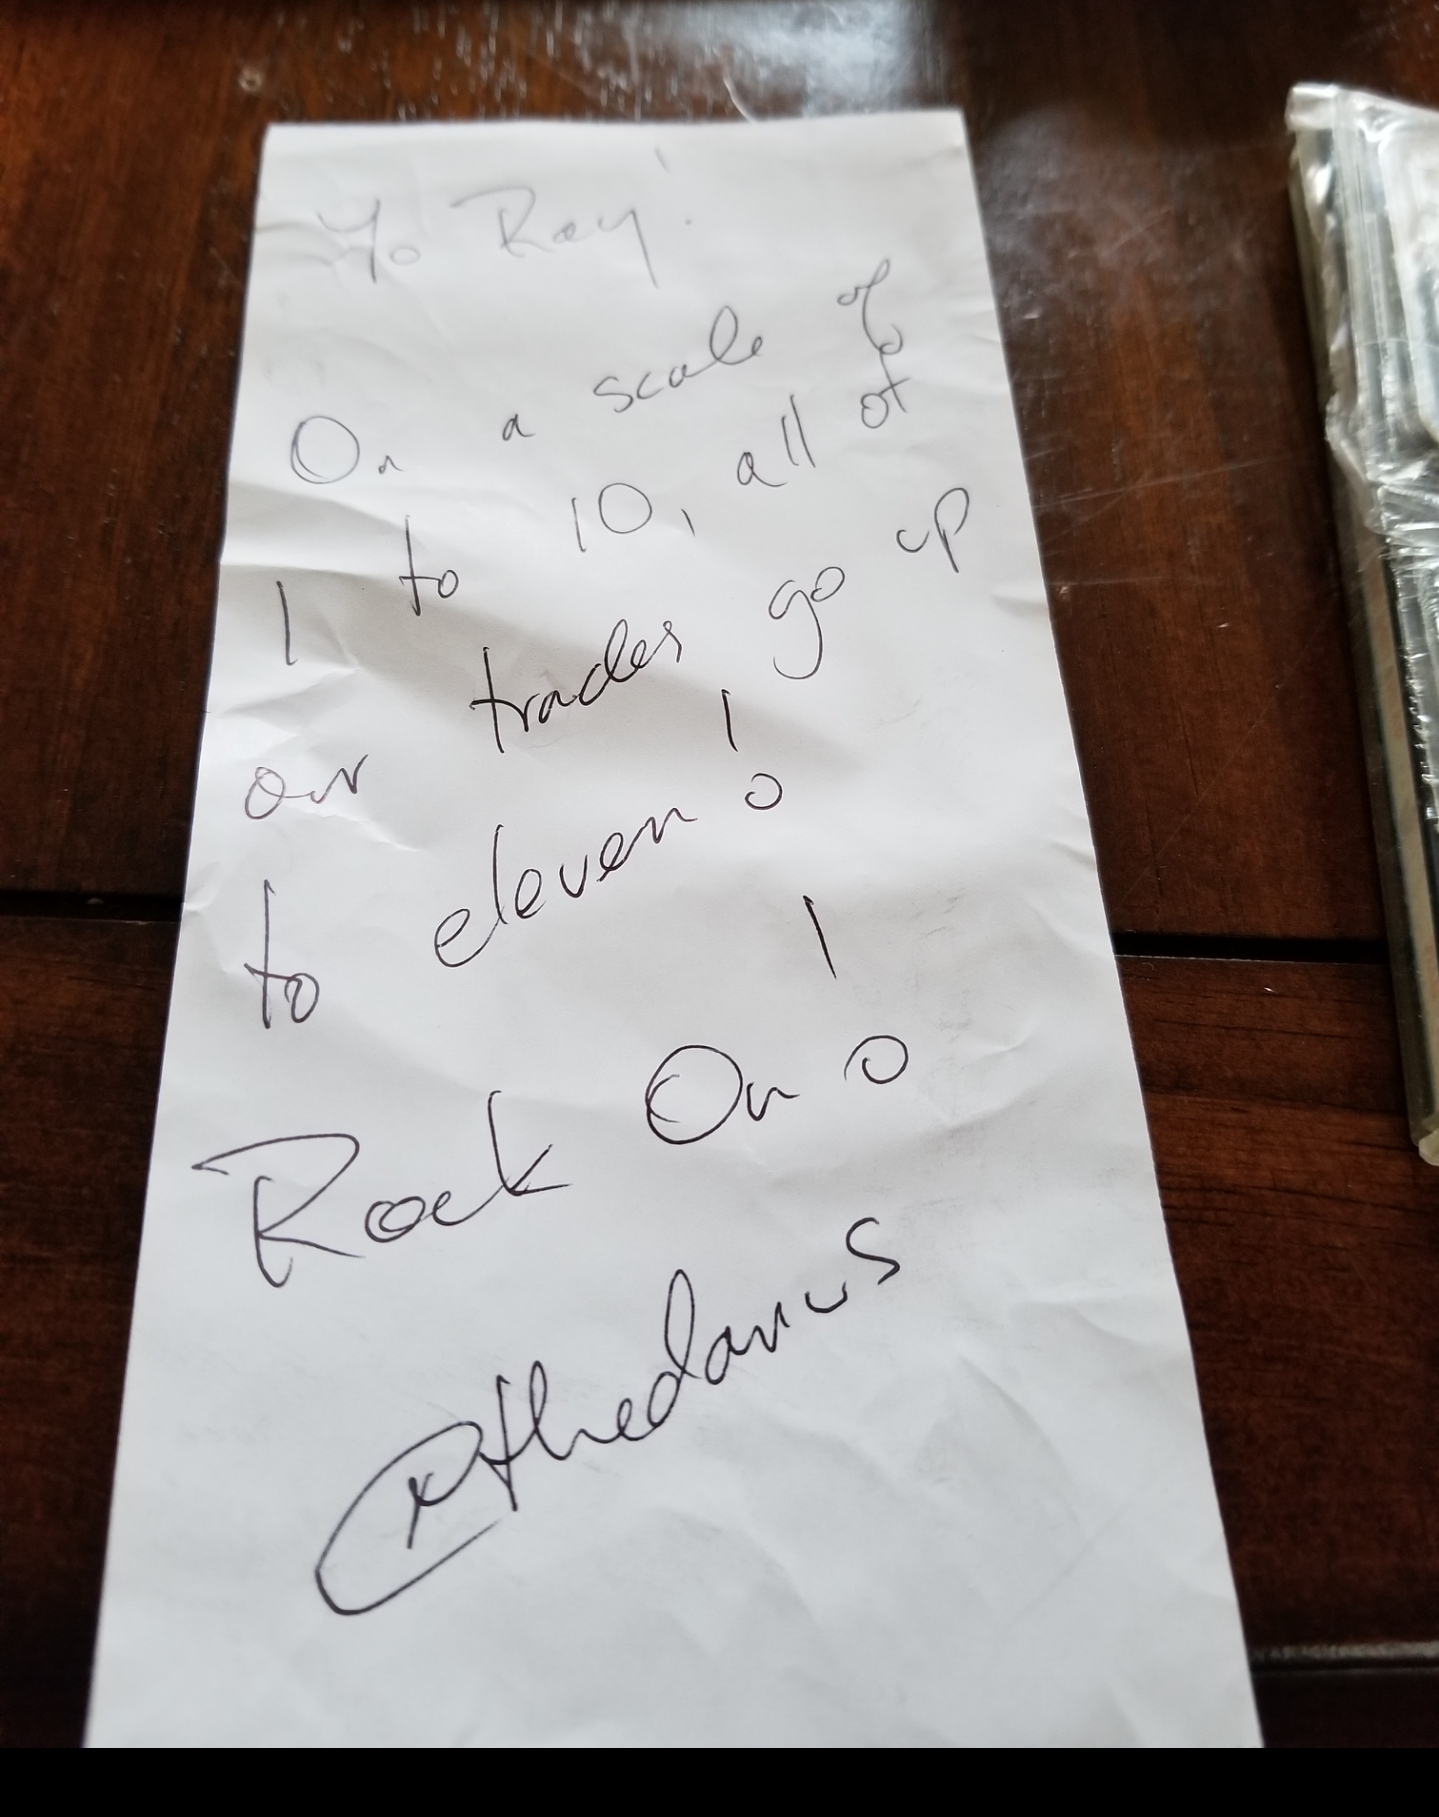 Yo Ray!
On a scale of
1 to 10, all of
our trades go up
to eleven!
Rock On!
@thedarius